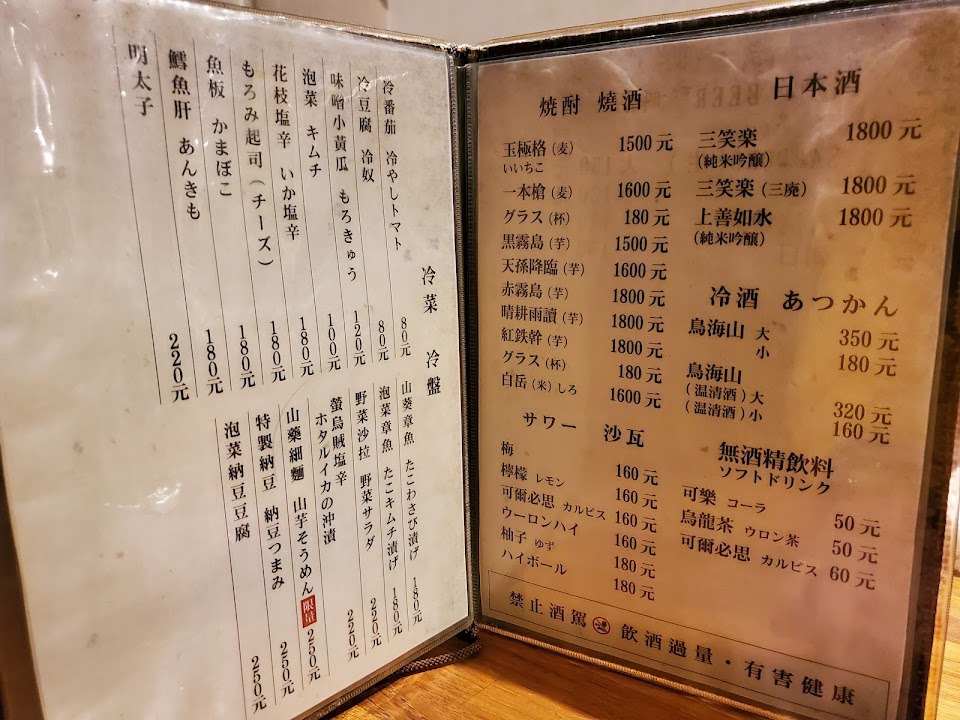 冷菜 冷盤
冷番茄 冷やしトマト 80元
冷豆腐 冷奴 80元
味噌小黃瓜 もろきゅう 120元
泡菜 キムチ 100元
花枝塩辛 いか塩辛 180元
もろみ起司(チーズ) 180元
魚板 かまぼこ 180元
鱈魚肝 あんきも 180元
明太子 220元
山葵章魚 たこわさび漬け 180元
泡菜章魚 たこキムチ漬け 180元
野菜沙拉 野菜サラダ 220元
螢烏賊塩辛 220元
ホタルイカの沖漬
山藥細麵 山芋そうめん 限量 250元
特製納豆 納豆つまみ 250元
泡菜納豆豆腐 250元
焼酎 燒酒
玉極格(麦) 1500元
いいちこ
一本槍(麦) 1600元
グラス(杯) 180元
黒霧島(芋) 1500元
天孫降臨(芋) 1600元
赤霧島(芋) 1800元
晴耕雨讀(芋) 1800元
紅鉄幹(芋) 1800元
グラス(杯) 180元
白岳(米)しろ 1600元
サワー 沙瓦
梅 160元
檸檬 レモン 160元
可爾必思 カルピス 160元
ウーロンハイ 160元
柚子 ゆず 180元
ハイボール 180元
日本酒
三笑楽 1800元
(純米吟醸)
三笑楽(三廃) 1800元
上善如水 1800元
(純米吟醸)
冷酒 あつかん
鳥海山 大 350元
小 180元
鳥海山
(温清酒)大 320元
(温清酒)小 160元
無酒精飲料
ソフトドリンク
可樂 コーラ 50元
烏龍茶 ウロン茶 50元
可爾必思 カルピス 60元
禁止酒駕 飲酒過量・有害健康